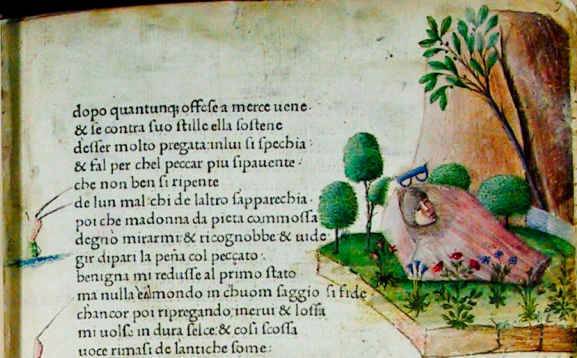 dopo quantunq; offese a merce uene·
& se contra suo stille ella sostene
desser molto pregata: inlui si spechia·
& fal per chel peccar piu sipauente·
che non ben si ripente
de lun mal: chi de laltro sapparechia·
poi che madonna da pieta commossa
degnò mirarmi: & ricognobbe & uide
gir dipari la pena col peccato·
benigna mi redusse al primo stato·
ma nulla è al mondo in chuom saggio si fide
chancor poi ripregando, inerui & lossa
mi uolse in dura selce: & cosi scossa
uoce rimasi de lantiche some: